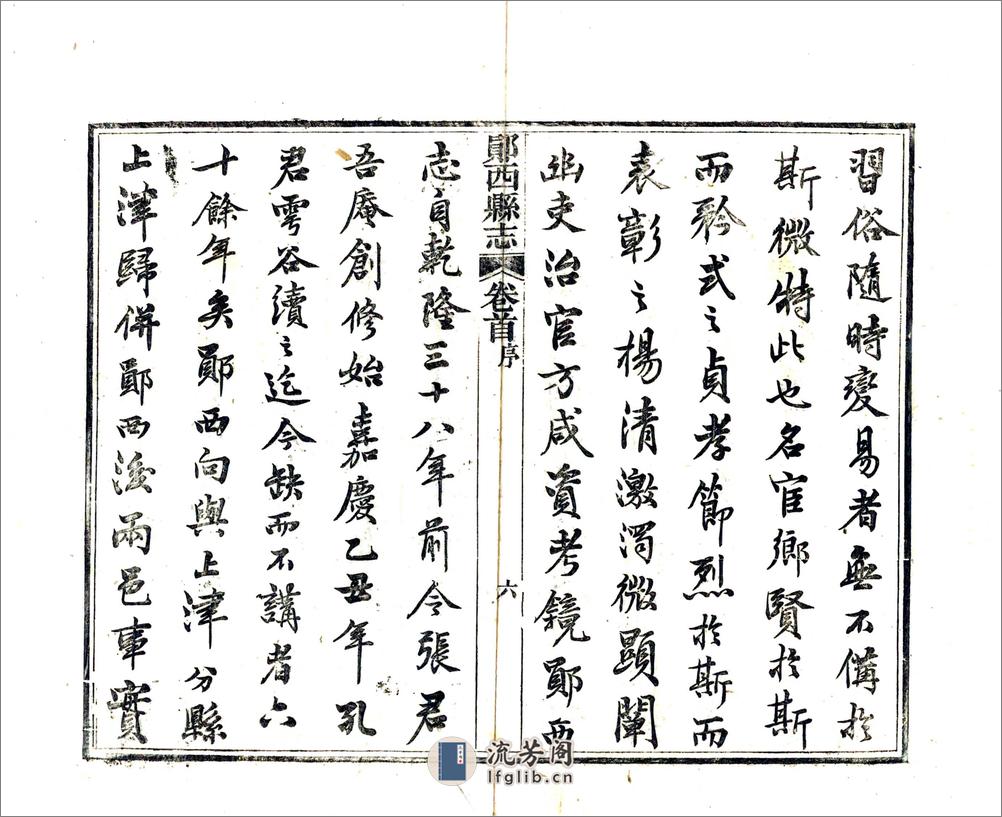 習俗隨時變易者無不備於
斯微特此也名宦鄉賢於斯
而矜式之貞孝節烈於斯而
表彰之楊清激濁微顯闡
幽吏治官方咸資考鏡鄖西
鄖西縣志 卷首 序 六
志自乾隆三十八年前令張君
吾庵創修始嘉慶乙丑年孔
君雩谷續之迄今缺而不講者六
十餘年矣鄖西向與上津分縣
上津歸併鄖西後兩邑事實
流芳阁
lfglib.cn